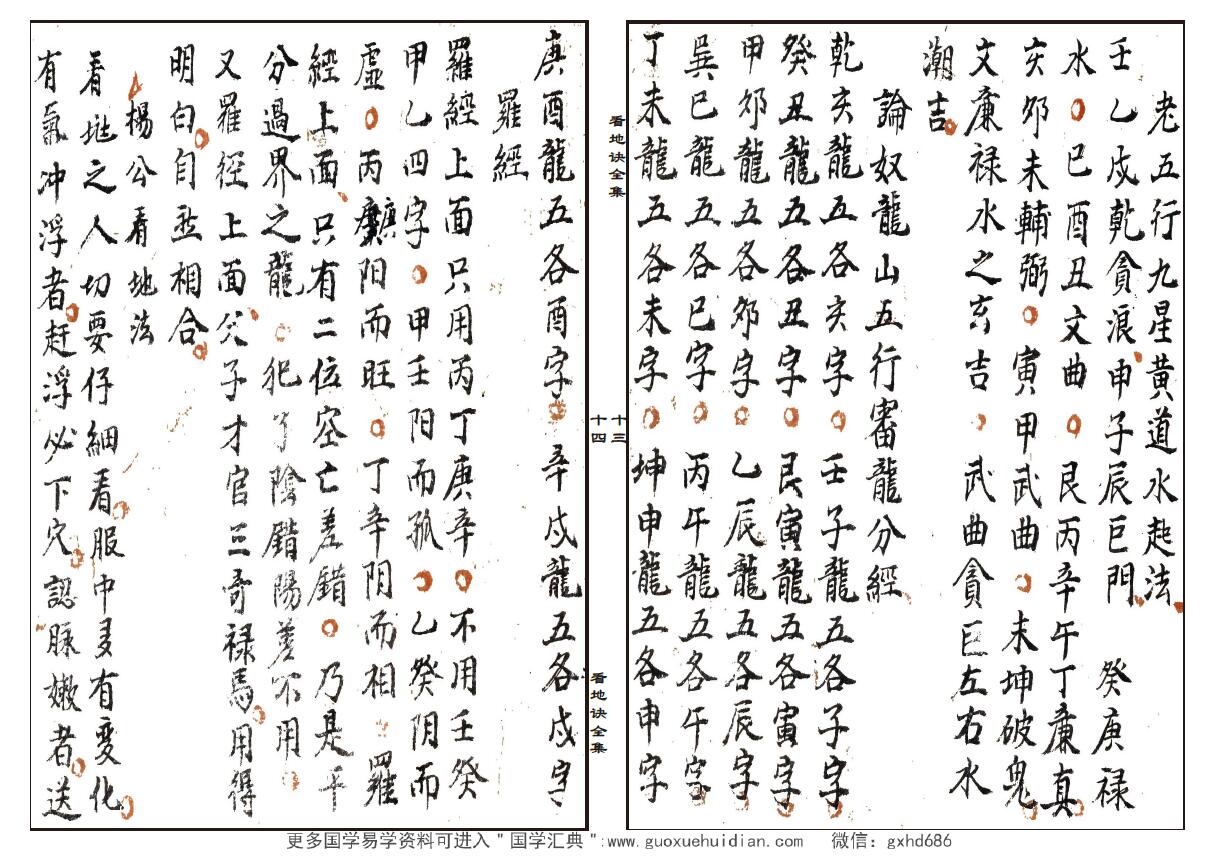 老五行九星黄道水起法
壬乙戌乾貪浪申子辰巨門 癸庚禄
水○巳酉丑文曲○艮丙辛午丁廉真
亥夘未輔弼○寅甲武曲○未坤破鬼
文廉禄水之玄吉○武曲貪巨左右水
潮吉
論奴龍山五行審龍分經
乾亥龍五各亥字○壬子龍五各子字
癸丑龍五各丑字○艮寅龍五各寅字
甲夘龍五各夘字○乙辰龍五各辰字
巽巳龍五各巳字○丙午龍五各午字
丁未龍五各未字○坤申龍五各申字
看地诀全集
十三
庚酉龍五各酉字○辛戌龍五各戌字
羅經
羅經上面只用丙丁庚辛○不用壬癸
甲乙四字○甲壬阳而孤○乙癸阴而
虚○丙庚阳而旺○丁辛阴而相 羅
經上面只有二位空亡差錯○乃是平
分過界之龍○犯了陰錯陽差不用
又羅徑上面父子才官三奇禄馬用得
明白自然相合
楊公看地法
看地之人切要仔細看服中多有变化
有氣冲浮者赶浮必下穴認脉嫩者送
十四
看地诀全集
更多国学易学资料可进入＂国学汇典＂:www.guoxuehuidian.com 微信：gxhd686